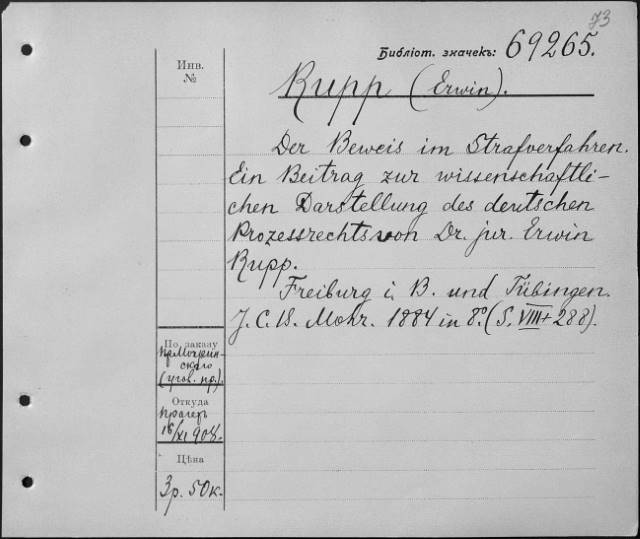 73
Библіот. значекъ: 69265.
Инв.
№
Rupp (Erwin).
Der Beweis im Strafverfahren.
Ein Beitrag zur wissenschaftli-
chen Darstellung des deutschen
Prozessrechts von Dr. jur. Erwin
Rupp.
Freiburg i. B. und Tübingen.
J. C. B. Mohr. 1884 in 8°. (S. VIII + 288).
По заказу
ского
(угол. пр.).
Откуда
Прагеръ
18/XI 908.
Цѣна
3р. 50к.